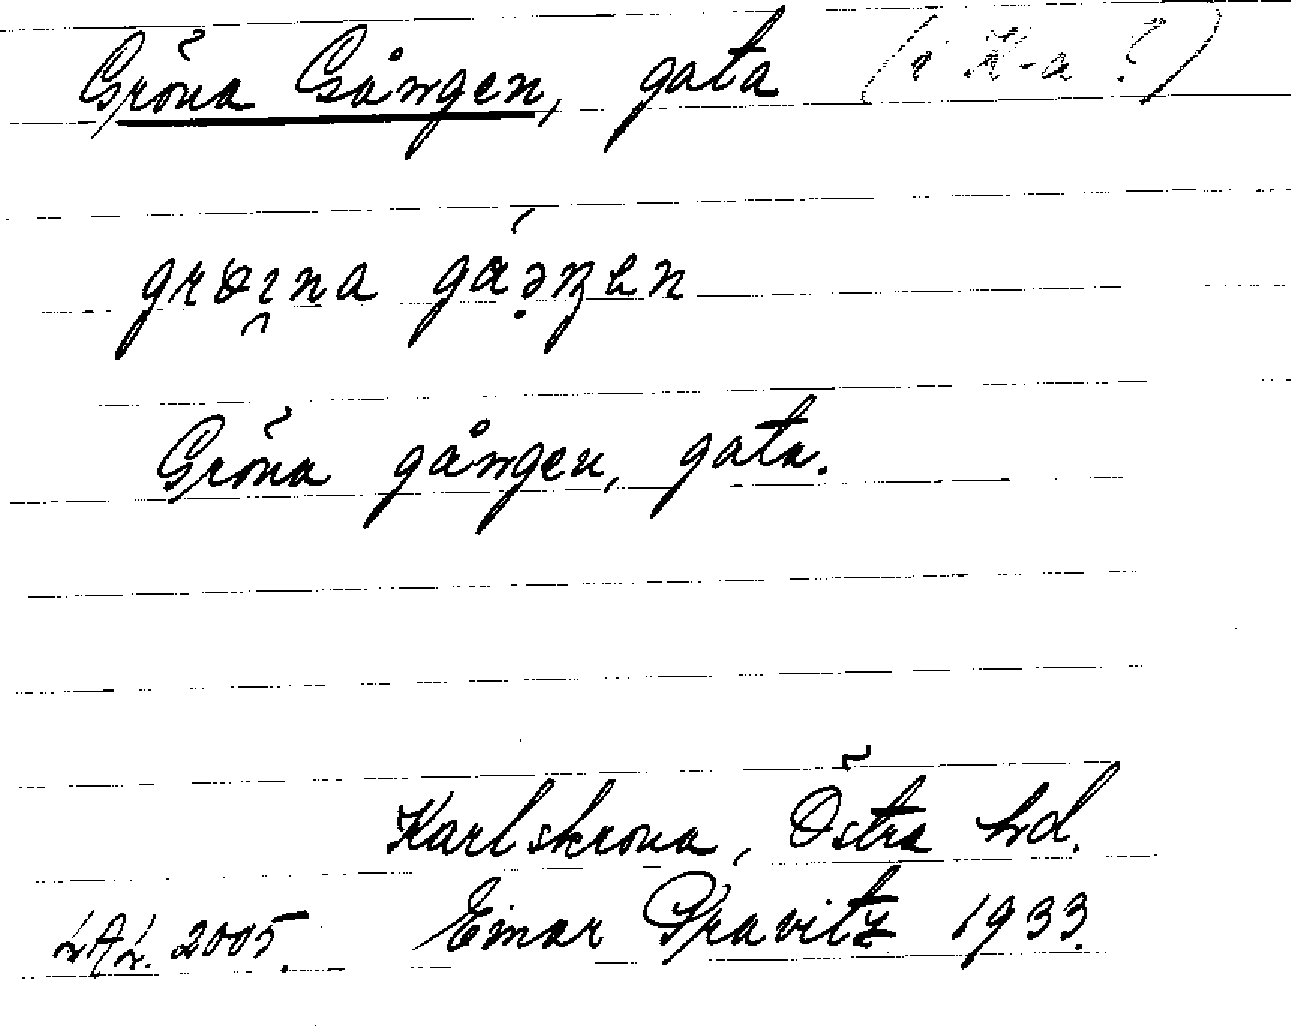 Gröna Gången, gata (i K-a?)
Gröna gången, gata.
Karlskrona, Östra hd.
LAL. 2005. Einar Pravitz 1933.